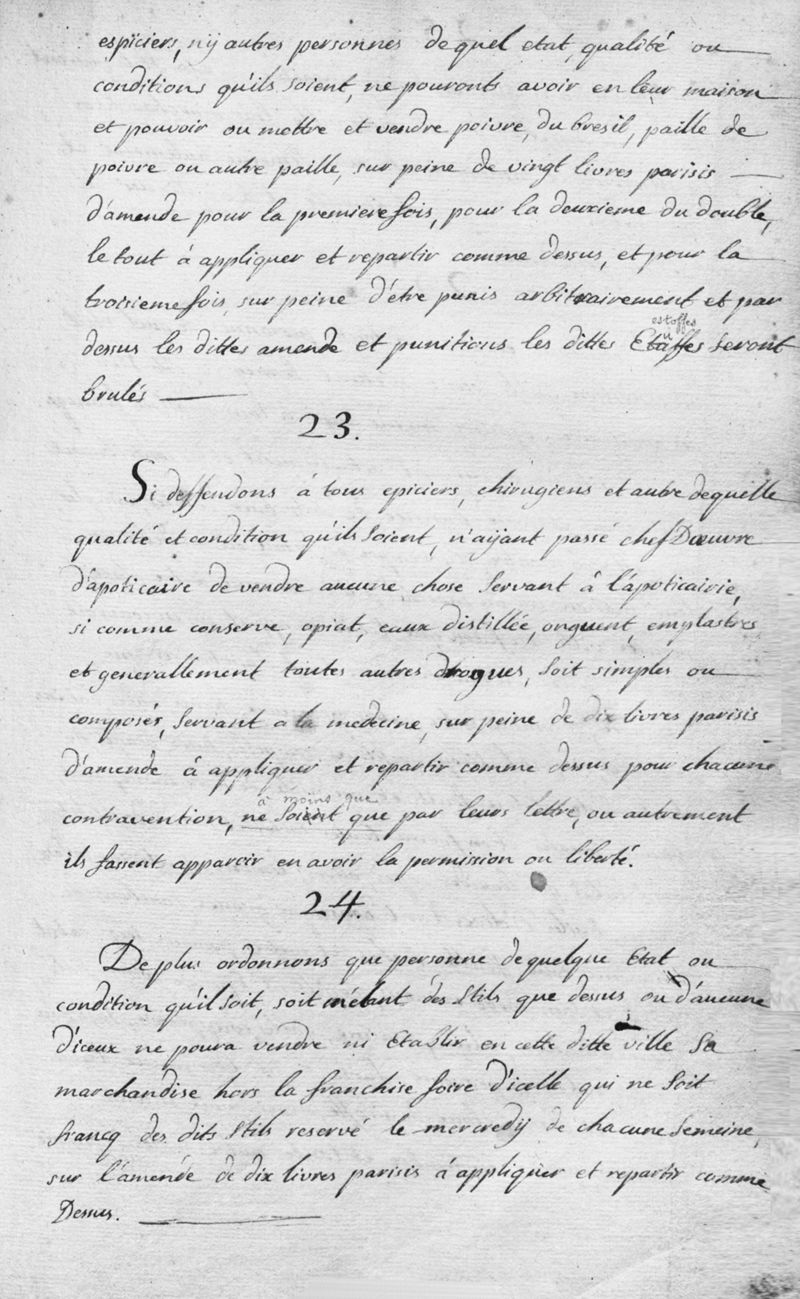 espiciers, nÿ autres personnes de quel etat, qualité ou
conditions qu'ils soient, ne pouronts avoir en leur maison
et pouvoir ou mettre et vendre poivre, du bresil, paille de
poivre ou autre paille, sur peine de vingt livres parisis
d'amende pour la premiere fois, pour la deuxieme du double,
le tout à appliquer et repartir comme dessus, et pour la
troisieme fois, sur peine d'étre punis arbitrairement et par
estoffes
dessus les dittes amende et punitions les dittes Etaffes seront
brulés
23.
Si deffendons à tous epiciers, chirugiens et autre de quelle
qualité et condition qu'ils soient, n'aÿant passé chef D'œuvre
d'apoticaire de vendre aucune chose servant à l'apoticairie,
si comme conserve, opiat, eaux distillée, onguent, emplastres,
et generallement toutes autres drogues, soit simples ou
composés, servant a la medecine, sur peine de dix livres parisis
d'amende à appliquer et repartir comme dessus pour chacune
à moins que
contravention, ne soient que par leurs lettre, ou autrement
ils fassent apparoir en avoir la permission ou liberté.
24.
De plus ordonnons que personne de quelque Etat ou
condition qu'il soit, soit mélant des stils que dessus ou d'aucune
d'iceux ne poura vendre ni Etablir en cette ditte ville sa
marchandise hors la franchise foire d'icelle qui ne soit
francq des dits stils reservé le mercredÿ de chacune semeine,
sur l'amende de dix livres parisis à appliquer et repartir comme
Dessus.